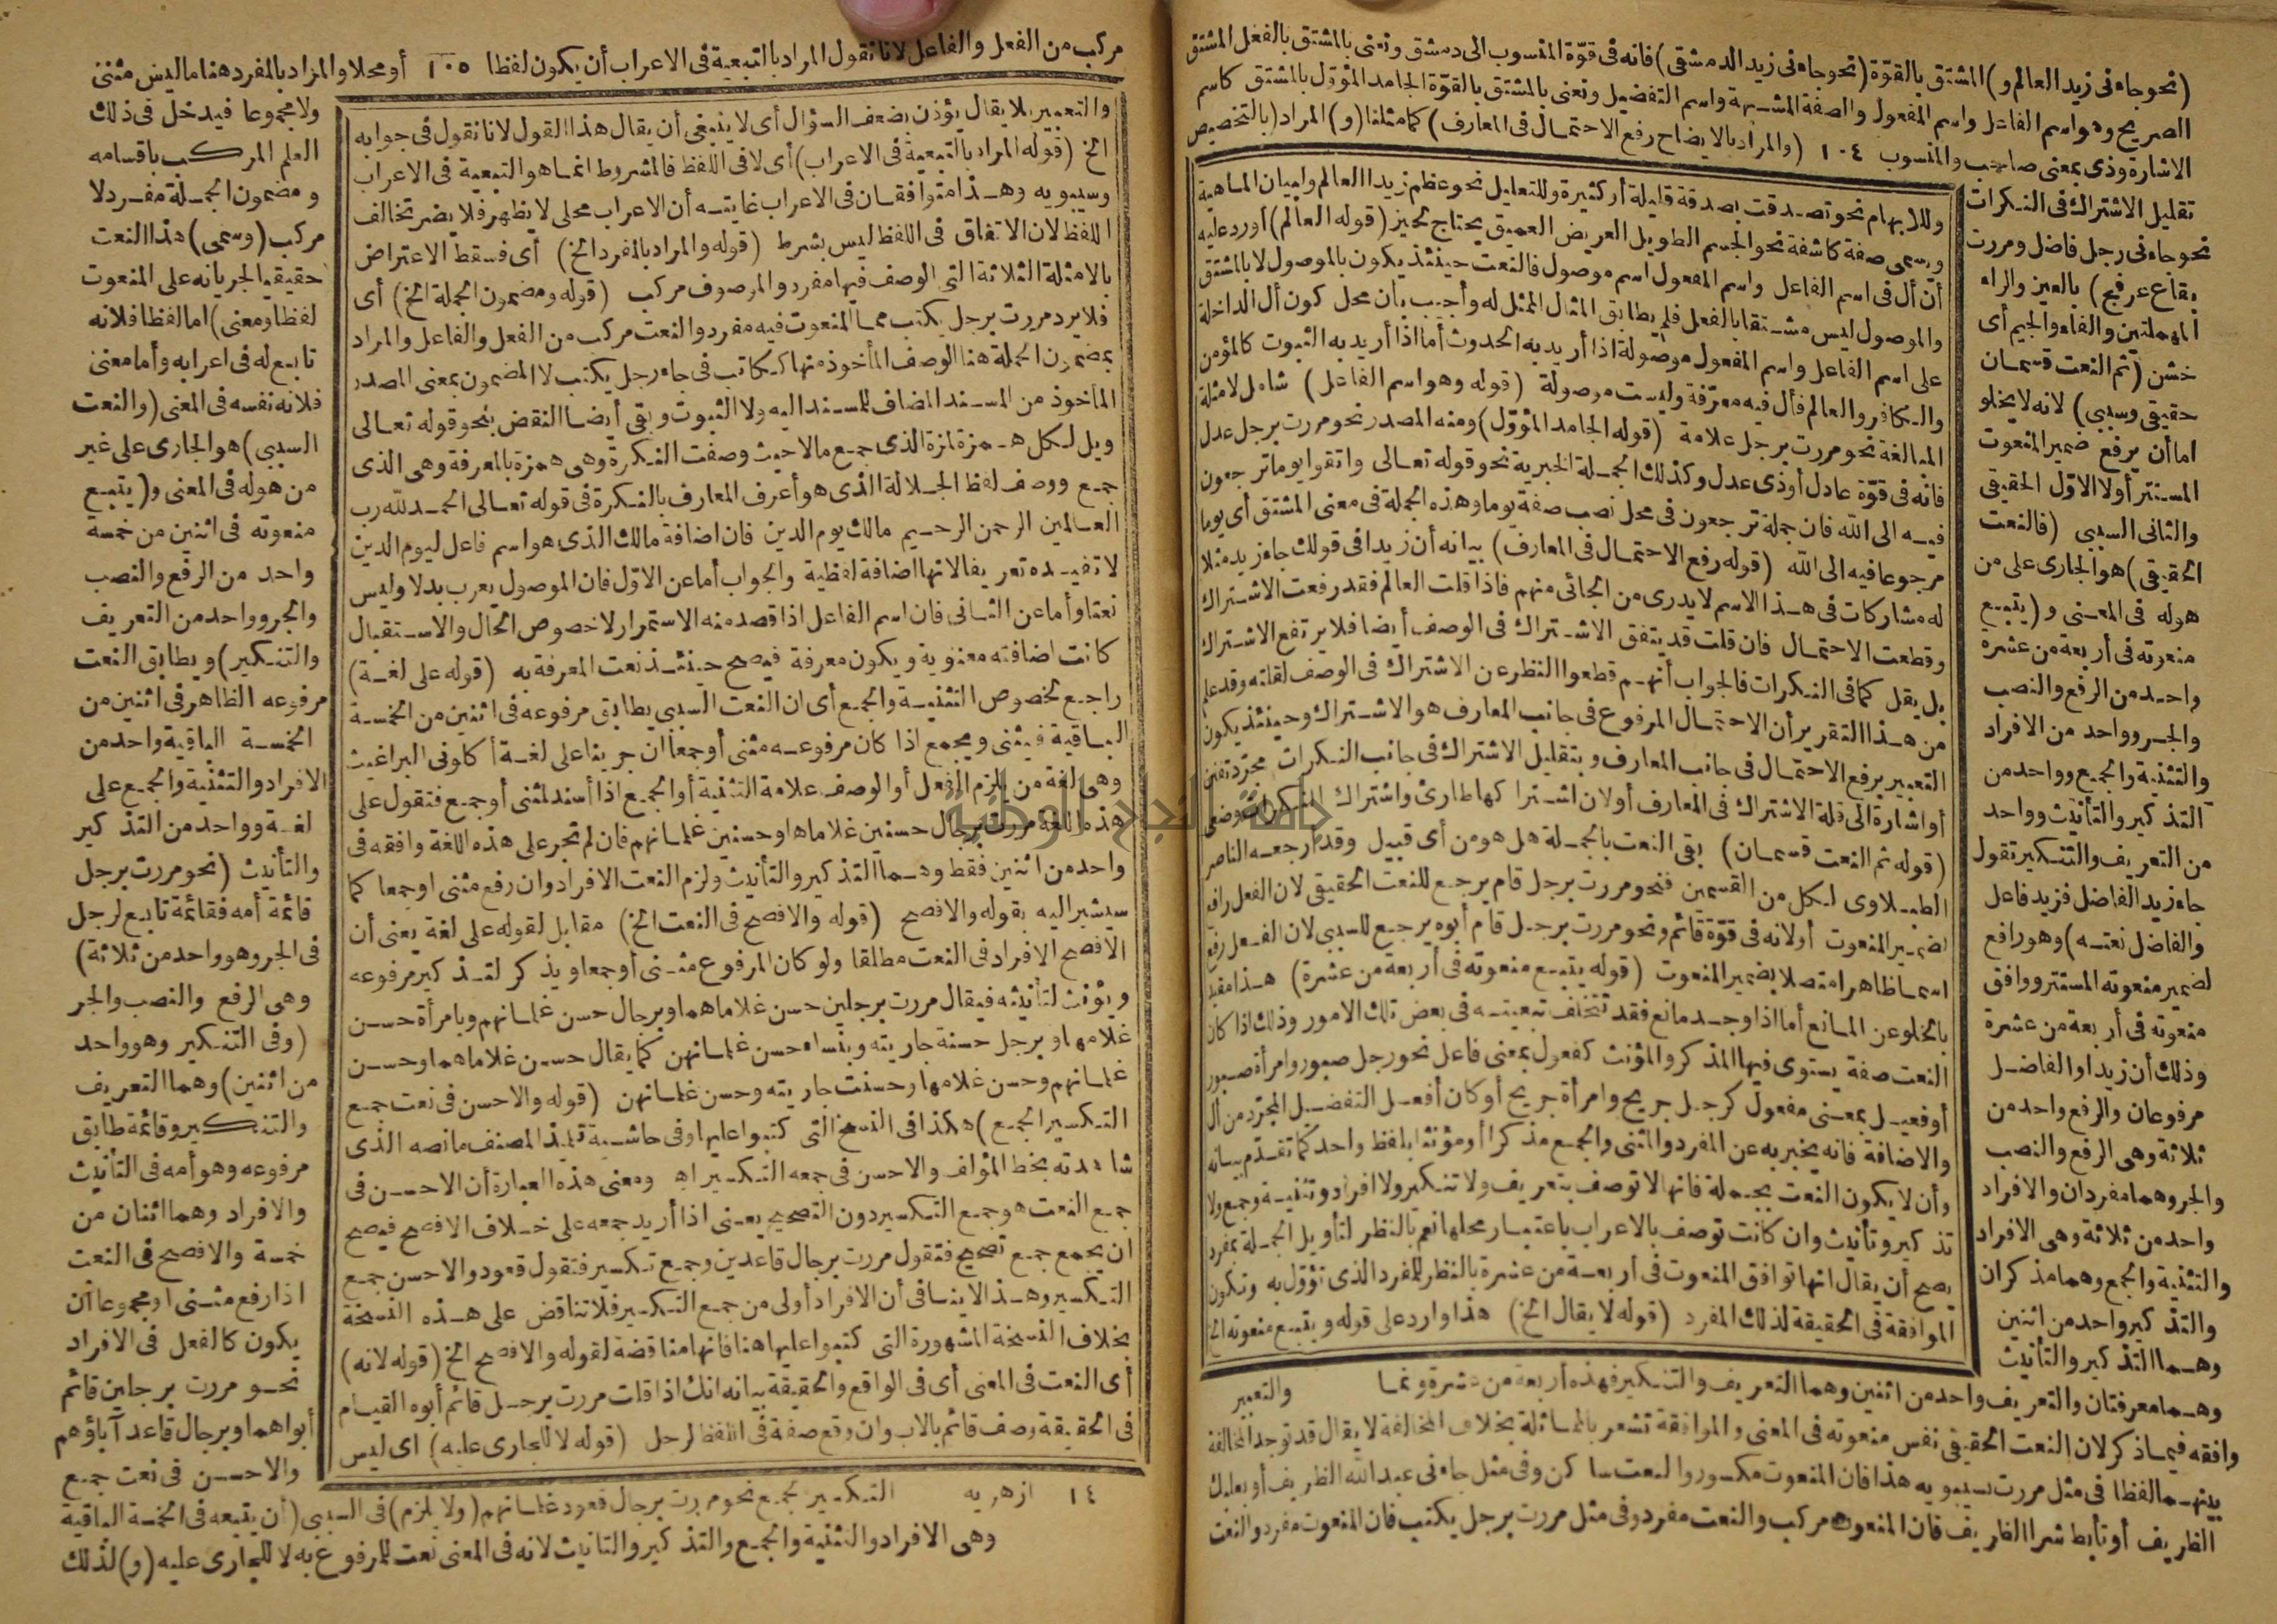 (نحو جاءنى زيد العالم و) المشتق بالقوّة (نحو جاءنى زيد الدمشقى) فانه فى قوّة المنسوب الى دمشق ونعنى بالمشتق بالفعل المشتق
الصريح وهو اسم الفاعل واسم المفعول والصفة المشبهة واسم التفضيل ونعنى بالمشتق بالقوّة الجامد المؤوّل بالمشتق كاسم
الاشارة وذى بمعنى صاحب والمنسوب ١٠٤ (والمراد بالايضاح رفع الاحتمال فى المعارف) كما مثلنا (و) المراد (بالتخصيص
تقليل الاشتراك فى النكرات
نحو جاءنى رجل فاضل ومررت
بقاع عرفج) بالعين والراء
المهملتين والفاء والجيم أى
خشن (ثم النعت قسمان
حقيقى وسببى) لانه لا يخلو
اما أن يرفع ضمير المنعوت
المستتر أولا الاوّل الحقيقى
والثانى السببى (فالنعت
الحقيقى) هو الجارى على من
هو له فى المعنى و(يتبع
منعوته فى أربعة من عشرة
واحد من الرفع والنصب
والجر وواحد من الافراد
والتثنية والجمع وواحد من
التذكير والتأنيث وواحد
من التعريف والتنكير تقول
جاء زيد الفاضل فزيد فاعل
والفاضل نعته) وهو رافع
لضمير منعوته المستتر ووافق
منعوته فى أربعة من عشرة
وذلك أن زيدا والفاضل
مرفوعان والرفع واحد من
ثلاثة وهى الرفع والنصب
والجر وهما مفردان والافراد
واحد من ثلاثة وهى الافراد
والتثنية والجمع وهما مذكران
والتذكير واحد من اثنين
وهما التذكير والتأنيث
وللابهام نحو تصدقت بصدقة قليلة أو كثيرة وللتعليل نحو عظم زيدا العالم ولبيان الماهية
ويسمى صفة كاشفة نحو الجسم الطويل العريض العميق يحتاج لحيز (قوله العالم) أورد عليه
أن أل فى اسم الفاعل واسم المفعول اسم موصول فالنعت حينئذ يكون بالموصول لا بالمشتق
والموصول ليس مشتقا بالفعل فلم يطابق المثال الممثل له وأجيب بان محل كون أل الداخلة
على اسم الفاعل واسم المفعول موصولة اذا أريد به الحدوث أما اذا أريد به الثبوت كالمؤمن
والكافر والعالم فأل فيه معرّفة وليست موصولة (قوله وهو اسم الفاعل) شامل لامثلة
المبالغة نحو مررت برجل علامة (قوله الجامد المؤوّل) ومنه المصدر نحو مررت برجل عدل
فانه فى قوّة عادل أو ذى عدل وكذلك الجملة الخبرية نحو قوله تعالى واتقوا يوما ترجعون
فيه الى الله فان جملة ترجعون فى محل نصب صفة يوما وهذه الجملة فى معنى المشتق أى يوما
مرجوعا فيه الى الله (قوله رفع الاحتمال فى المعارف) بيانه أن زيدا فى قولك جاء زيد مثلا
له مشاركات فى هذا الاسم لا يدرى من الجائى منهم فاذا قلت العالم فقد رفعت الاشتراك
وقطعت الاحتمال فان قلت قد يتفق الاشتراك فى الوصف أيضا فلا يرتفع الاشتراك
بل يقل كما فى النكرات فالجواب أنهم قطعوا النظر عن الاشتراك فى الوصف لقلته وقد علم
من هذا التقرير أن الاحتمال المرفوع فى جانب المعارف هو الاشتراك وحينئذ يكون
التعبير برفع الاحتمال فى جانب المعارف وبتقليل الاشتراك فى جانب النكرات مجرّد تفنن
أو اشارة الى قلة الاشتراك فى المعارف أو لان اشتراكها طارئ واشتراك النكرات وضعى
(قوله ثم النعت قسمان) بقى النعت بالجملة هل هو من أى قبيل وقد ارجعه الناصر
الطبلاوى لكل من القسمين فنحو مررت برجل قام يرجع للنعت الحقيقى لان الفعل رافع
لضمير المنعوت أو لانه فى قوّة قائم ونحو مررت برجل قام أبوه يرجع للسببى لان الفعل رفع
اسما ظاهرا متصلا بضمير المنعوت (قوله يتبع منعوته فى أربعة من عشرة) هذا مقيد
بالخلو عن المانع أما اذا وجد مانع فقد تتخلف تبعيته فى بعض تلك الامور وذلك اذا كان
النعت صفة يستوى فيها المذكر والمؤنث كفعول بمعنى فاعل نحو رجل صبور وامرأة صبور
أو فعيل بمعنى مفعول كرجل جريح وامرأة جريح أو كان أفعل التفضيل المجرّد من أل
والاضافة فانه يخبر به عن المفرد والمثنى والجمع مذكرا أو مؤنثا بلفظ واحد كما تقدّم بيانه
وأن لا يكون النعت بجملة فانها لا توصف بتعريف ولا تنكير ولا افراد وتثنية وجمع ولا
تذكير وتأنيث وان كانت توصف بالاعراب باعتبار محلها نعم بالنظر لتأويل الجملة بمفرد
يصح أن يقال انها توافق المنعوت فى أربعة من عشرة بالنظر للمفرد الذى تؤوّل به وتكون
الموافقة فى الحقيقة لذلك المفرد (قوله لا يقال الخ) هذا وارد على قوله ويتبع منعوته الخ
وهما معرفتان والتعريف واحد من اثنين وهما التعريف والتنكير فهذه أربعة من عشرة وانما والتعبير
وافقه فيما ذكر لان النعت الحقيقى نفس منعوته فى المعنى والموافقة تشعر بالمماثلة بخلاف المخالفة لا يقال قد توجد المخالفة
بينهما لفظا فى مثل مررت بسيبويه هذا فان المنعوت مكسور والنعت ساكن وفى مثل جاءنى عبد الله الظريف أو بعلبك
الظريف أو تأبط شرا الظريف فان المنعوت مركب والنعت مفرد وفى مثل مررت برجل يكتب فان المنعوت مفرد والنعت
مركب من الفعل والفاعل لانا نقول المراد بالتبعية فى الاعراب أن يكون لفظا ١٠٥ أو محلا والمراد بالمفرد هنا ما ليس مثنى
ولا مجموعا فيدخل فى ذلك
العلم المركب باقسامه
ومضمون الجملة مفرد لا
مركب (وسمى) هذا النعت
حقيقيا لجريانه على المنعوت
لفظا ومعنى) اما لفظا فلانه
تابع له فى اعرابه وأما معنى
فلانه نفسه فى المعنى (والنعت
السببى) هو الجارى على غير
من هو له فى المعنى و(يتبع
منعوته فى اثنين من خمسة
واحد من الرفع والنصب
والجر وواحد من التعريف
والتنكير) ويطابق النعت
مرفوعه الظاهر فى اثنين من
الخمسة الباقية واحد من
الافراد والتثنية والجمع على
لغة وواحد من التذكير
والتأنيث (نحو مررت برجل
قائمة أمه فقائمة تابع لرجل
فى الجر وهو واحد من ثلاثة)
وهى الرفع والنصب والجر
(وفى التنكير وهو واحد
من اثنين) وهما التعريف
والتنكير وقائمة طابق
مرفوعه وهو أمه فى التأنيث
والافراد وهما اثنان من
خمسة والافصح فى النعت
اذا رفع مثنى أو مجموعا أن
يكون كالفعل فى الافراد
نحو مررت برجلين قائم
أبواهما وبرجال قاعد آباؤهم
والاحسن فى نعت جمع
والتعبير بلا يقال يؤذن بضعف السؤال أى لا ينبغى أن يقال هذا القول لانا نقول فى جوابه
الخ (قوله المراد بالتبعية فى الاعراب) أى لا فى اللفظ فالمشروط انما هو التبعية فى الاعراب
وسيبويه وهذا متوافقان فى الاعراب غايته أن الاعراب محلى لا يظهر فلا يضر تخالف
اللفظ لان الاتفاق فى اللفظ ليس بشرط (قوله والمراد بالمفرد الخ) أى فسقط الاعتراض
بالامثلة الثلاثة التى الوصف فيها مفرد والموصوف مركب (قوله ومضمون الجملة الخ) أى
فلا يرد مررت برجل يكتب مما المنعوت فيه مفرد والنعت مركب من الفعل والفاعل والمراد
بمضمون الجملة هنا الوصف المأخوذ منها ككاتب فى جاء رجل يكتب لا المضمون بمعنى المصدر
المأخوذ من المسند المضاف للمسند اليه ولا الثبوت وبقى أيضا النقض بنحو قوله تعالى
ويل لكل همزة لمزة الذى جمع مالا حيث وصفت النكرة وهى همزة بالمعرفة وهى الذى
جمع ووصف لفظ الجلالة الذى هو أعرف المعارف بالنكرة فى قوله تعالى الحمد لله رب
العالمين الرحمن الرحيم مالك يوم الدين فان اضافة مالك الذى هو اسم فاعل ليوم الدين
لا تفيده تعريفا لانها اضافة لفظية والجواب أما عن الاوّل فان الموصول يعرب بدلا وليس
نعتا وأما عن الثانى فان اسم الفاعل اذا قصد منه الاستمرار لا خصوص الحال والاستقبال
كانت اضافته معنوية ويكون معرفة فيصح حينئذ نعت المعرفة به (قوله على لغة)
راجع لخصوص التثنية والجمع أى ان النعت السببى يطابق مرفوعه فى اثنين من الخمسة
الباقية فيثنى ويجمع اذا كان مرفوعه مثنى أو جمعا ان جرينا على لغة أكلونى البراغيث
وهى لغة من يلزم الفعل أو الوصف علامة التثنية أو الجمع اذا أسند لمثنى أو جمع فتقول على
هذه اللغة مررت برجال حسنين غلاماها وحسنين غلمانهم فان لم تجر على هذه اللغة وافقه فى
واحد من اثنين فقط وهما التذكير والتأنيث ولزم النعت الافراد وان رفع مثنى او جمعا كما
سيشير اليه بقوله والافصح (قوله والافصح فى النعت الخ) مقابل لقوله على لغة يعنى أن
الافصح الافراد فى النعت مطلقا ولو كان المرفوع مثنى أو جمعا ويذكر لتذكير مرفوعه
ويؤنث لتأنيثه فيقال مررت برجلين حسن غلاماهما وبرجال حسن غلمانهم وبامرأة حسن
غلامها وبرجل حسنة جاريته وبنساء حسن غلمانهن كما يقال حسن غلاماهما وحسن
غلمانهم وحسن غلامها وحسنت جاريته وحسن غلمانهن (قوله والاحسن فى نعت جمع
التكسير الجمع) هكذا فى النسخ التى كتبوا عليها وفى حاشية تلميذ المصنف ما نصه الذى
شاهدته بخط المؤلف والاحسن فى جمعه التكسير اه ومعنى هذه العبارة أن الاحسن فى
جمع النعت هو جمع التكسير دون التصحيح يعنى اذا أريد جمعه على خلاف الافصح فيصح
ان يجمع جمع تصحيح فتقول مررت برجال قاعدين وجمع تكسير فتقول قعود والاحسن جمع
التكسير وهذا لا ينافى أن الافراد أولى من جمع التكسير فلا تناقض على هذه النسخة
بخلاف النسخة المشهورة التى كتبوا عليها هنا فانها مناقضة لقوله والافصح الخ (قوله لانه)
أى النعت فى المعنى أى فى الواقع والحقيقة بيانه انك اذا قلت مررت برجل قائم أبوه القيام
فى الحقيقة وصف قائم بالاب وان وقع صفة فى اللفظ لرجل (قوله لا للجارى عليه) اى ليس
١٤ ازهريه التكسير الجمع نحو مررت برجال قعود غلمانهم (ولا يلزم) فى السببى (أن يتبعه فى الخمسة الباقية
وهى الافراد والتثنية والجمع والتذكير والتانيث لانه فى المعنى نعت للمرفوع به لا للجارى عليه (و) لذلك
جامعة النجاح الوطنية